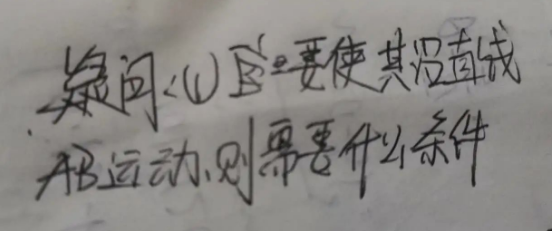 疑问:(1) 要使其沿直线
AB运动,则需要什么条件